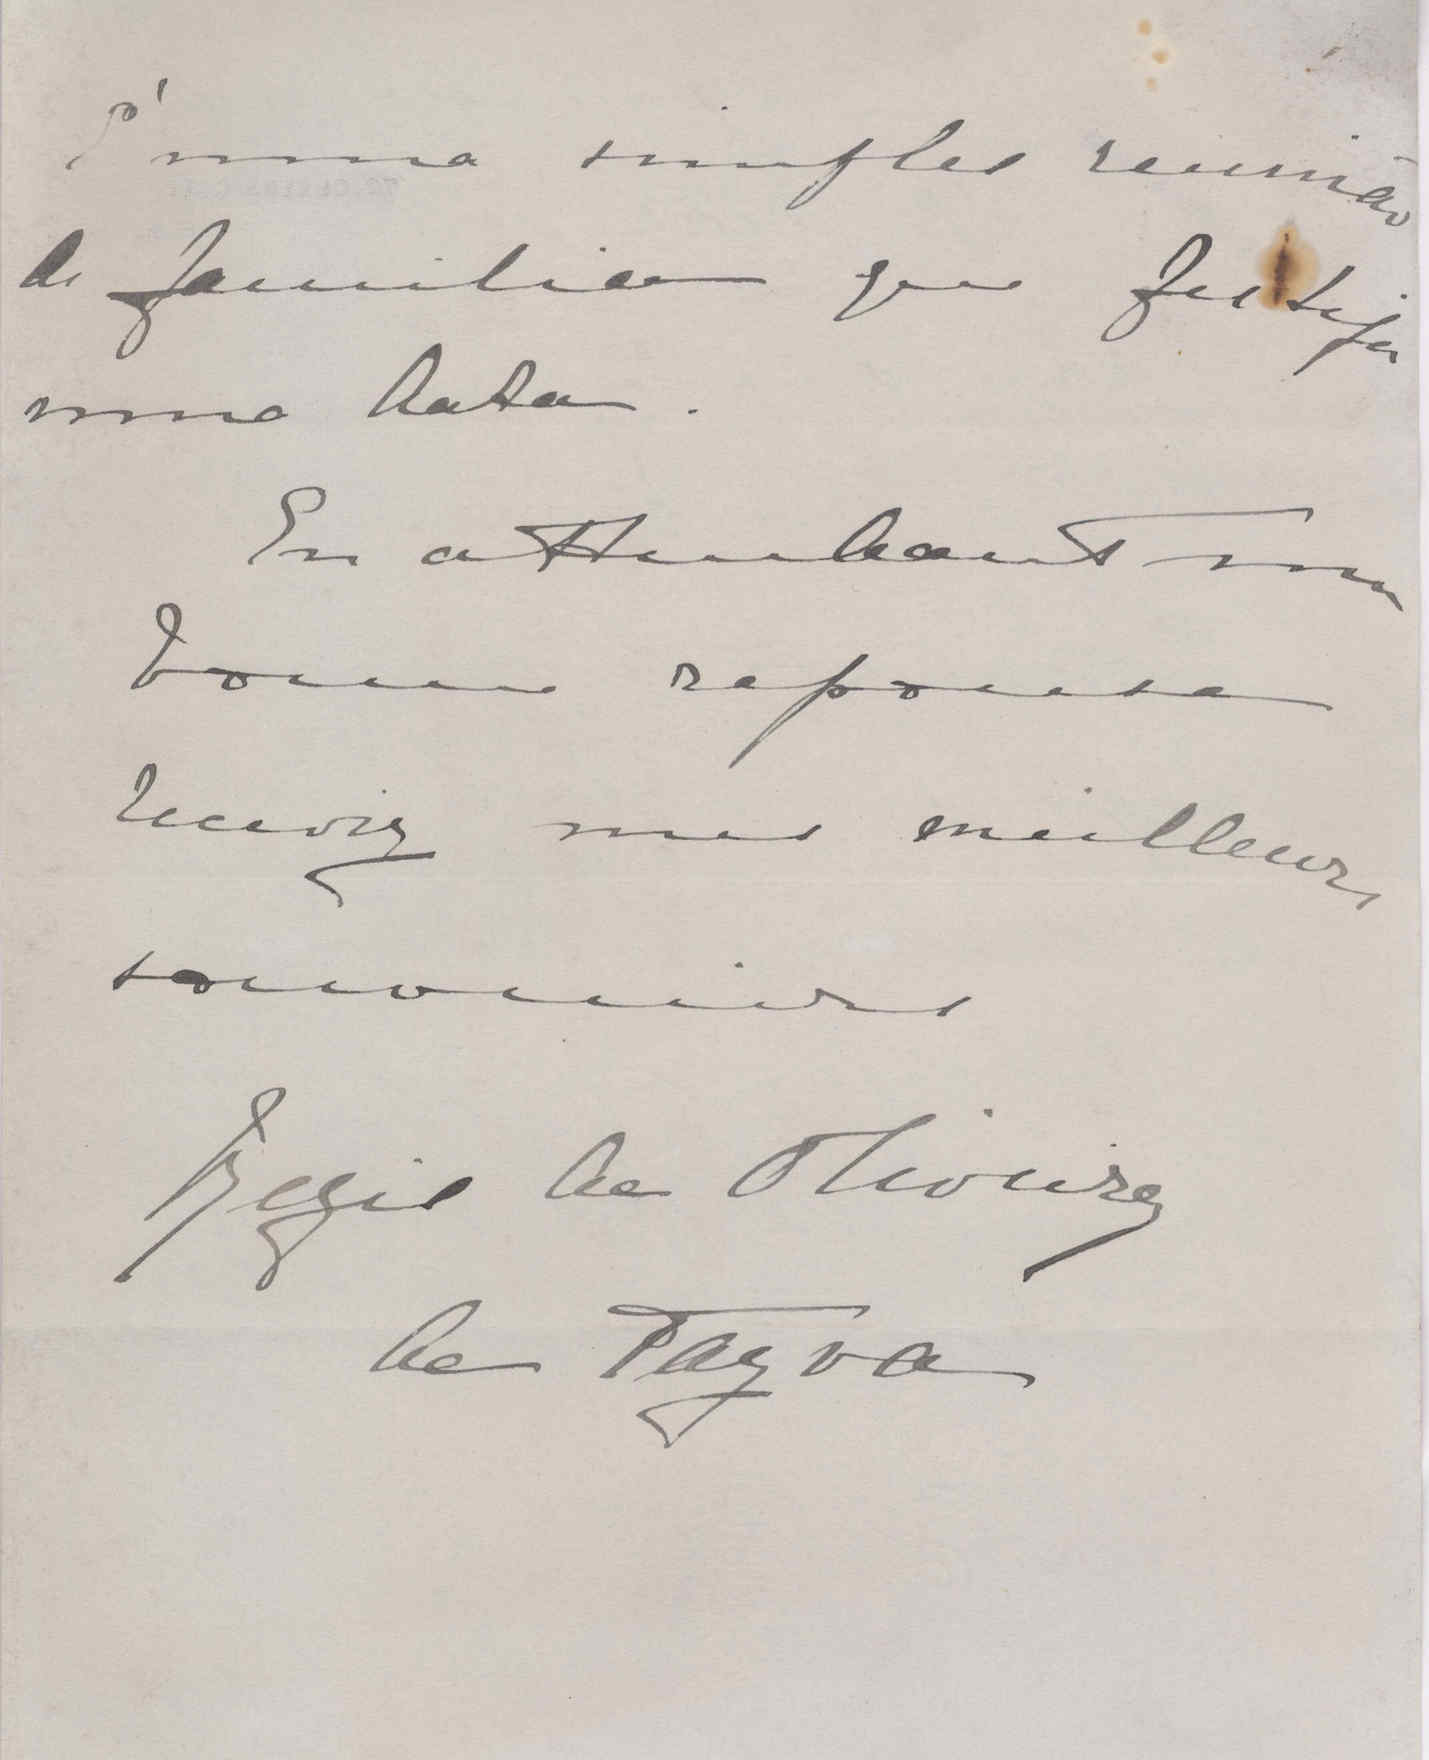 É uma simples reunião
de familia que festeja
uma data.
En attendant une
bonne reponse
recevez mes meilleurs
souvenirs
Regis de Oliveira
de Payva